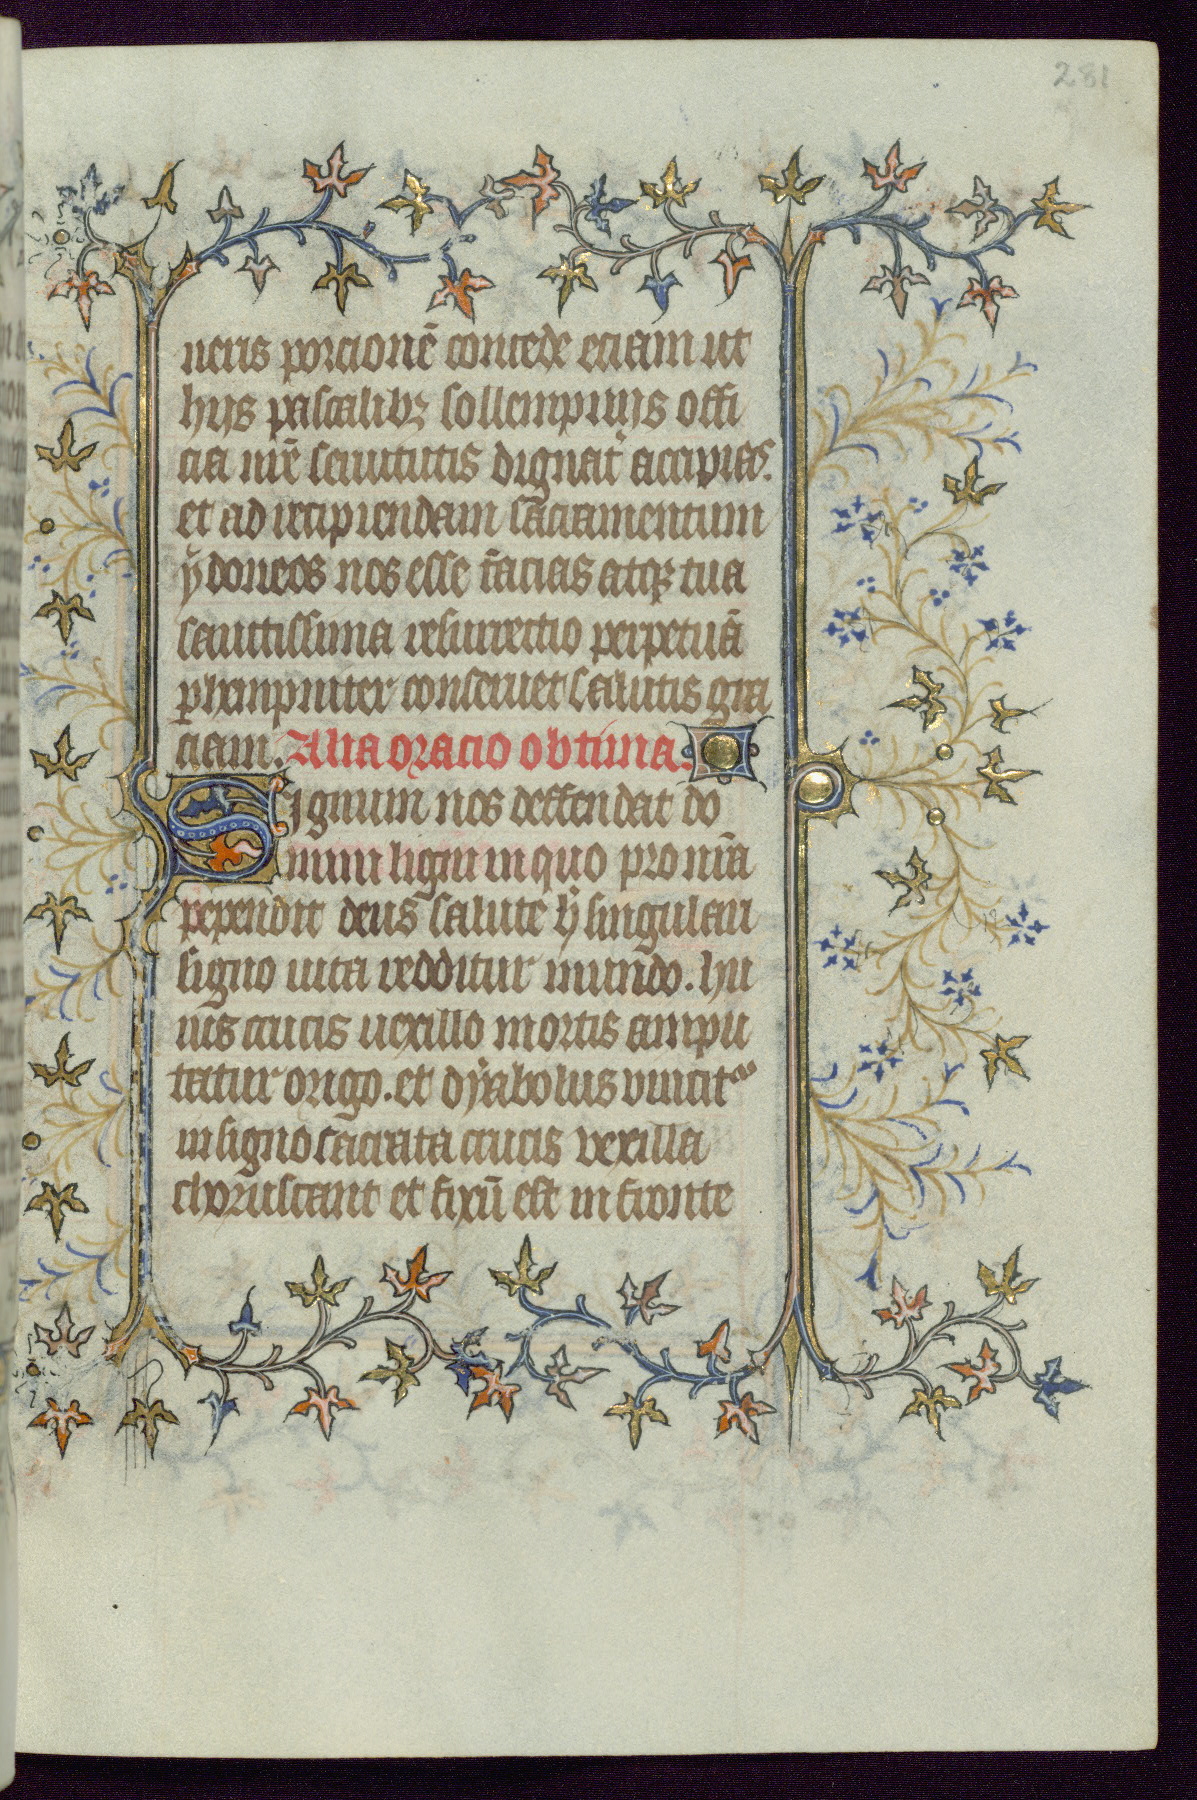 281
neris porcionē concede eciam ut
hijs pascalibꝫ sollempnijs offi
cia nr̄e seruitutis dignat̄ accipias.
et ad recipiendam sacramentum
ẏdoneos nos esse facias atqꝫ tua
sanctissima resurrectio perpetuā
ꝑhempniter conseruet salutis gra
ciam. Alia oracio obtima.
Signum nos deffendat do
mini ligni in quo pro nr̄a
pependit deus salute hẏ singulari
signo uita redditur mundo. hu
ius crucis uexillo mortis ampu
tatur origo. et dẏabolus vincit᷑
in ligno sacrata crucis vexilla
choruscant et fixū est in fronte